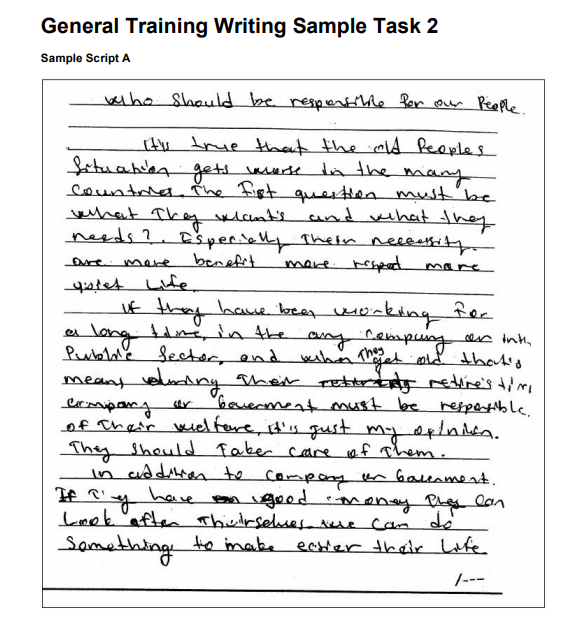 General Training Writing Sample Task 2
Sample Script A
who should be responsible for our People.
It's true that the old Peoples
Situation gets worse in the many
Countries. The Fist question must be
what They want's and what they
needs?. Especially Their necessity.
are more benefit more respect more
quiet Life.
if they have been working for
a long time, in the any company or inth
Public Sector, and when They get old that's
means during Their retire's time
company or Gouverment must be responsible.
of Their welfare, it's just my opinion.
They should Taker care of Them.
in addition to company or Gouverment.
If They have good money They Can
Look after Theirselves we can do
Something to make easier their Life
1---